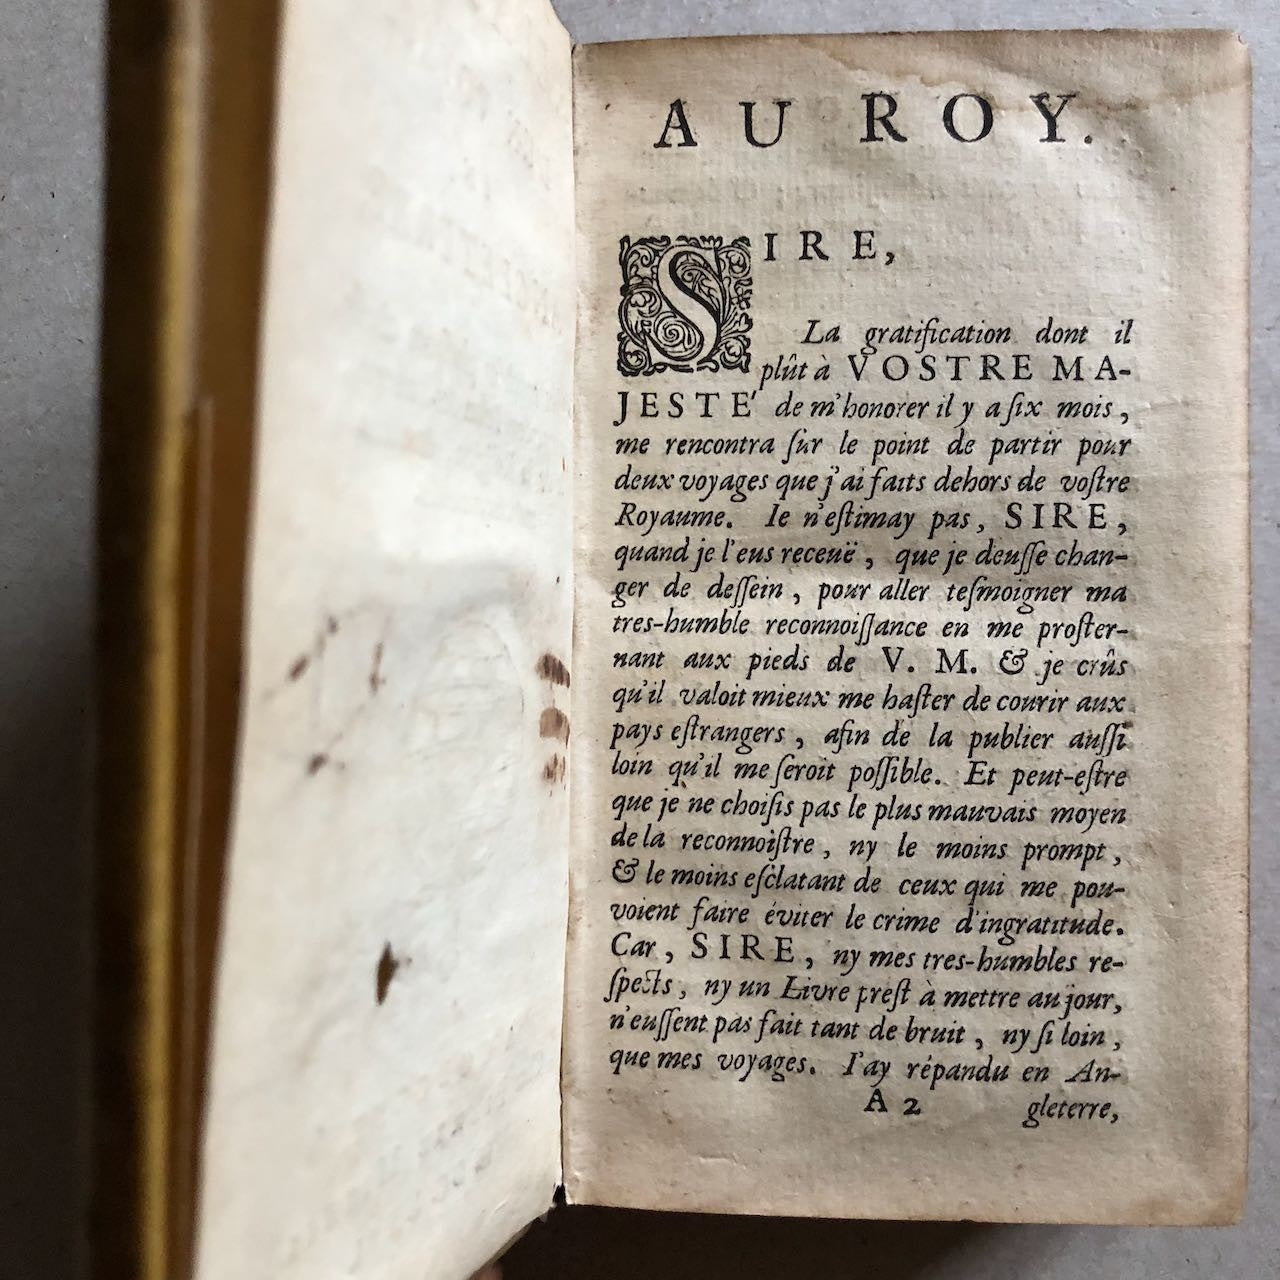 AU ROY.
SIRE,
La gratification dont il
plût à VOSTRE MA-
JESTE' de m'honorer il y a ſix mois,
me rencontra ſur le point de partir pour
deux voyages que j'ai faits dehors de voſtre
Royaume. Ie n'eſtimay pas, SIRE,
quand je l'eus receuë, que je deuſſe chan-
ger de deſſein, pour aller teſmoigner ma
tres-humble reconnoiſſance en me proſter-
nant aux pieds de V. M. & je crûs
qu'il valoit mieux me haſter de courir aux
pays eſtrangers, afin de la publier auſſi
loin qu'il me ſeroit poſſible. Et peut-eſtre
que je ne choiſis pas le plus mauvais moyen
de la reconnoiſtre, ny le moins prompt,
& le moins eſclatant de ceux qui me pou-
voient faire éviter le crime d'ingratitude.
Car, SIRE, ny mes tres-humbles re-
ſpects, ny un Livre preſt à mettre au jour,
n'euſſent pas fait tant de bruit, ny ſi loin,
que mes voyages. I'ay répandu en An-
A 2 gleterre,